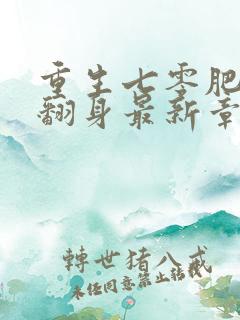 重生七零肥
翻身最新章
轉世猪八戒
未经同意禁止转载